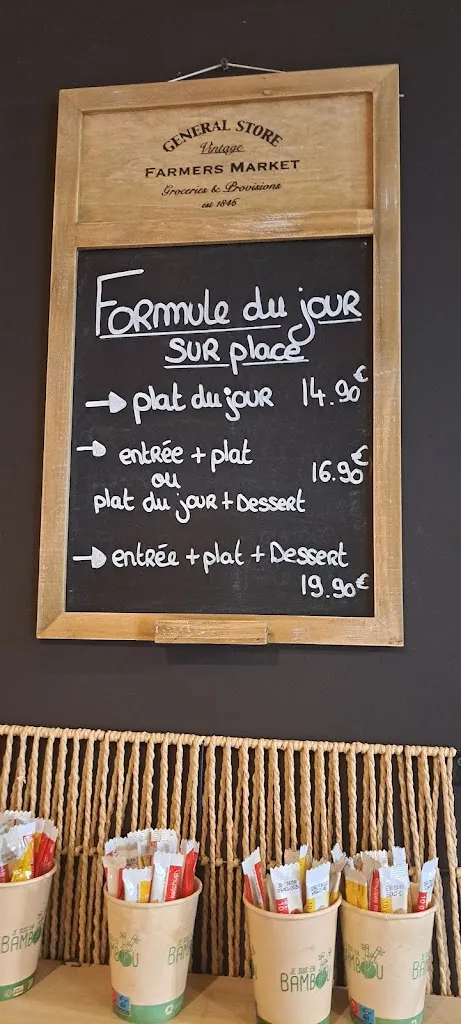 GENERAL STORE
Vintage
FARMERS MARKET
Groceries & Provisions
est 1846
FORMULE du jOUR
SUR place
→ plat du jOUR 14.90€
→ entRée + plat
ou 16.90€
plat du jouR + Dessert
→ entRée + plat + Dessert
19.90€
BAMBOU
JE SUIS EN
BAMBOU
BAMB
ketchup
JE SUIS EN
BAMBOU
BAMBOU